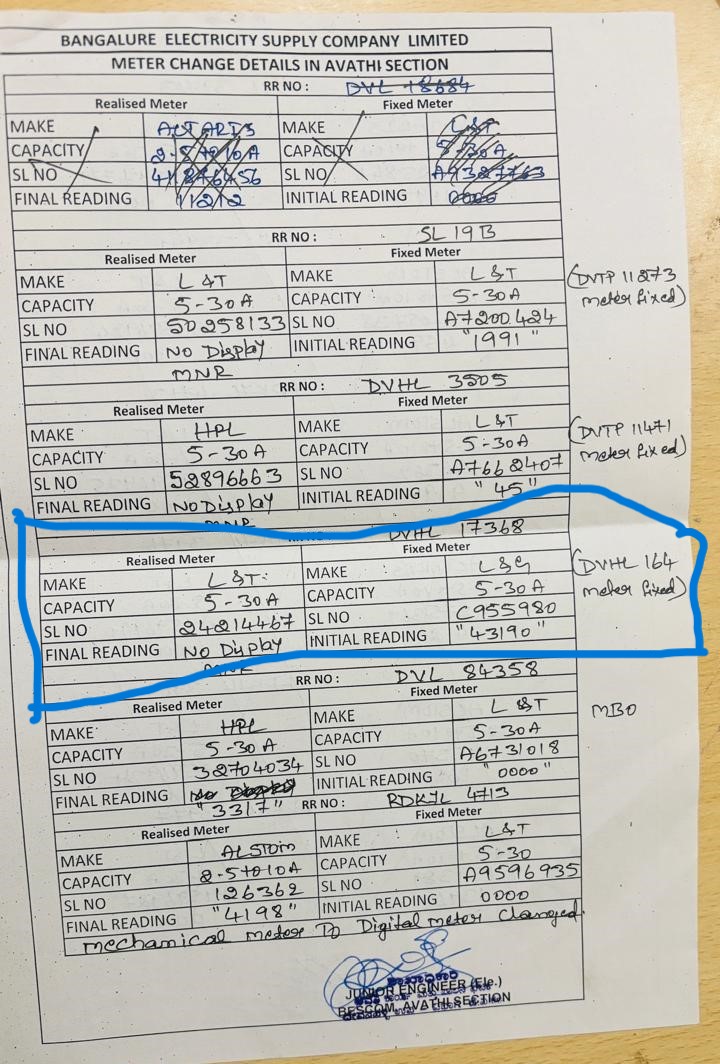 BANGALURE ELECTRICITY SUPPLY COMPANY LIMITED
METER CHANGE DETAILS IN AVATHI SECTION
RR NO : DVL 18684
Realised Meter Fixed Meter
MAKE MAKE L&T
CAPACITY 2-5+010A CAPACITY 5-30A
SL NO SL NO A9327763
FINAL READING 11212 INITIAL READING 0000
RR NO : SL 19B
Realised Meter Fixed Meter
MAKE L&T MAKE L&T
CAPACITY 5-30A CAPACITY : 5-30A (DVTP 11273
SL NO 50258133 SL NO A7200424 meter fixed)
FINAL READING No Display INITIAL READING "1991"
MNR
RR NO : DVHL 3505
Realised Meter Fixed Meter
MAKE HPL MAKE L&T
CAPACITY 5-30A CAPACITY 5-30A (DVTP 11471
SL NO 52896663 SL NO A7662407 meter fixed)
FINAL READING No Display INITIAL READING "45"
MNR
DVHL 17368
Realised Meter Fixed Meter
MAKE L&T MAKE L&G (DVHL 164
CAPACITY 5-30A CAPACITY 5-30A meter fixed)
SL NO 24214467 SL NO C955980
FINAL READING No Display INITIAL READING "43190"
MNR
RR NO : DVL 84358
Realised Meter Fixed Meter
MAKE HPL MAKE L&T MBO
CAPACITY 5-30A CAPACITY 5-30A
SL NO 32704034 SL NO A6731018
FINAL READING No Display INITIAL READING "0000"
"3317"
RR NO : RDKJL 4713
Realised Meter Fixed Meter
MAKE ALSTOM MAKE L&T
CAPACITY 2-5+010A CAPACITY 5-30
SL NO 126362 SL NO A9596935
FINAL READING "4198" INITIAL READING 0000
mechanical meter To Digital meter Changed.
JUNIOR ENGINEER (Ele.)
BESCOM, AVATHI SECTION